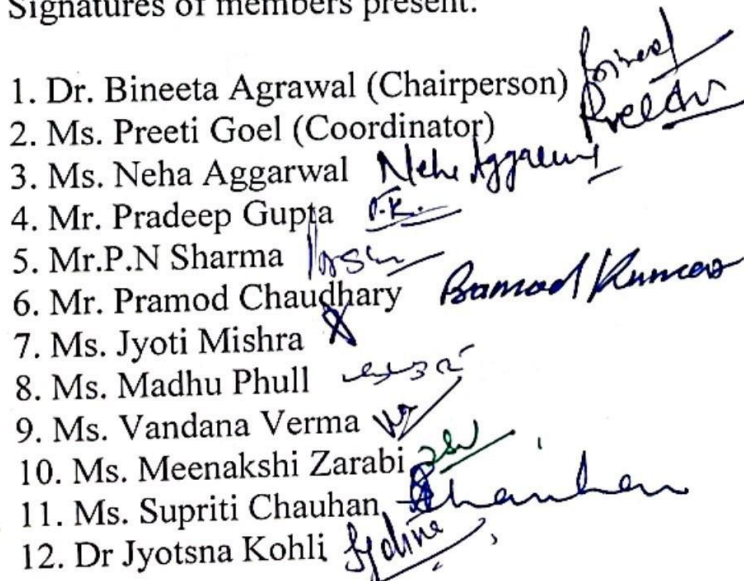 Signatures of members present:
1. Dr. Bineeta Agrawal (Chairperson)
2. Ms. Preeti Goel (Coordinator) Preeti
3. Ms. Neha Aggarwal Neha Aggarwal
4. Mr. Pradeep Gupta P.K.
5. Mr.P.N Sharma
6. Mr. Pramod Chaudhary Pramod Kumar
7. Ms. Jyoti Mishra
8. Ms. Madhu Phull
9. Ms. Vandana Verma
10. Ms. Meenakshi Zarabi
11. Ms. Supriti Chauhan Schauhan
12. Dr Jyotsna Kohli